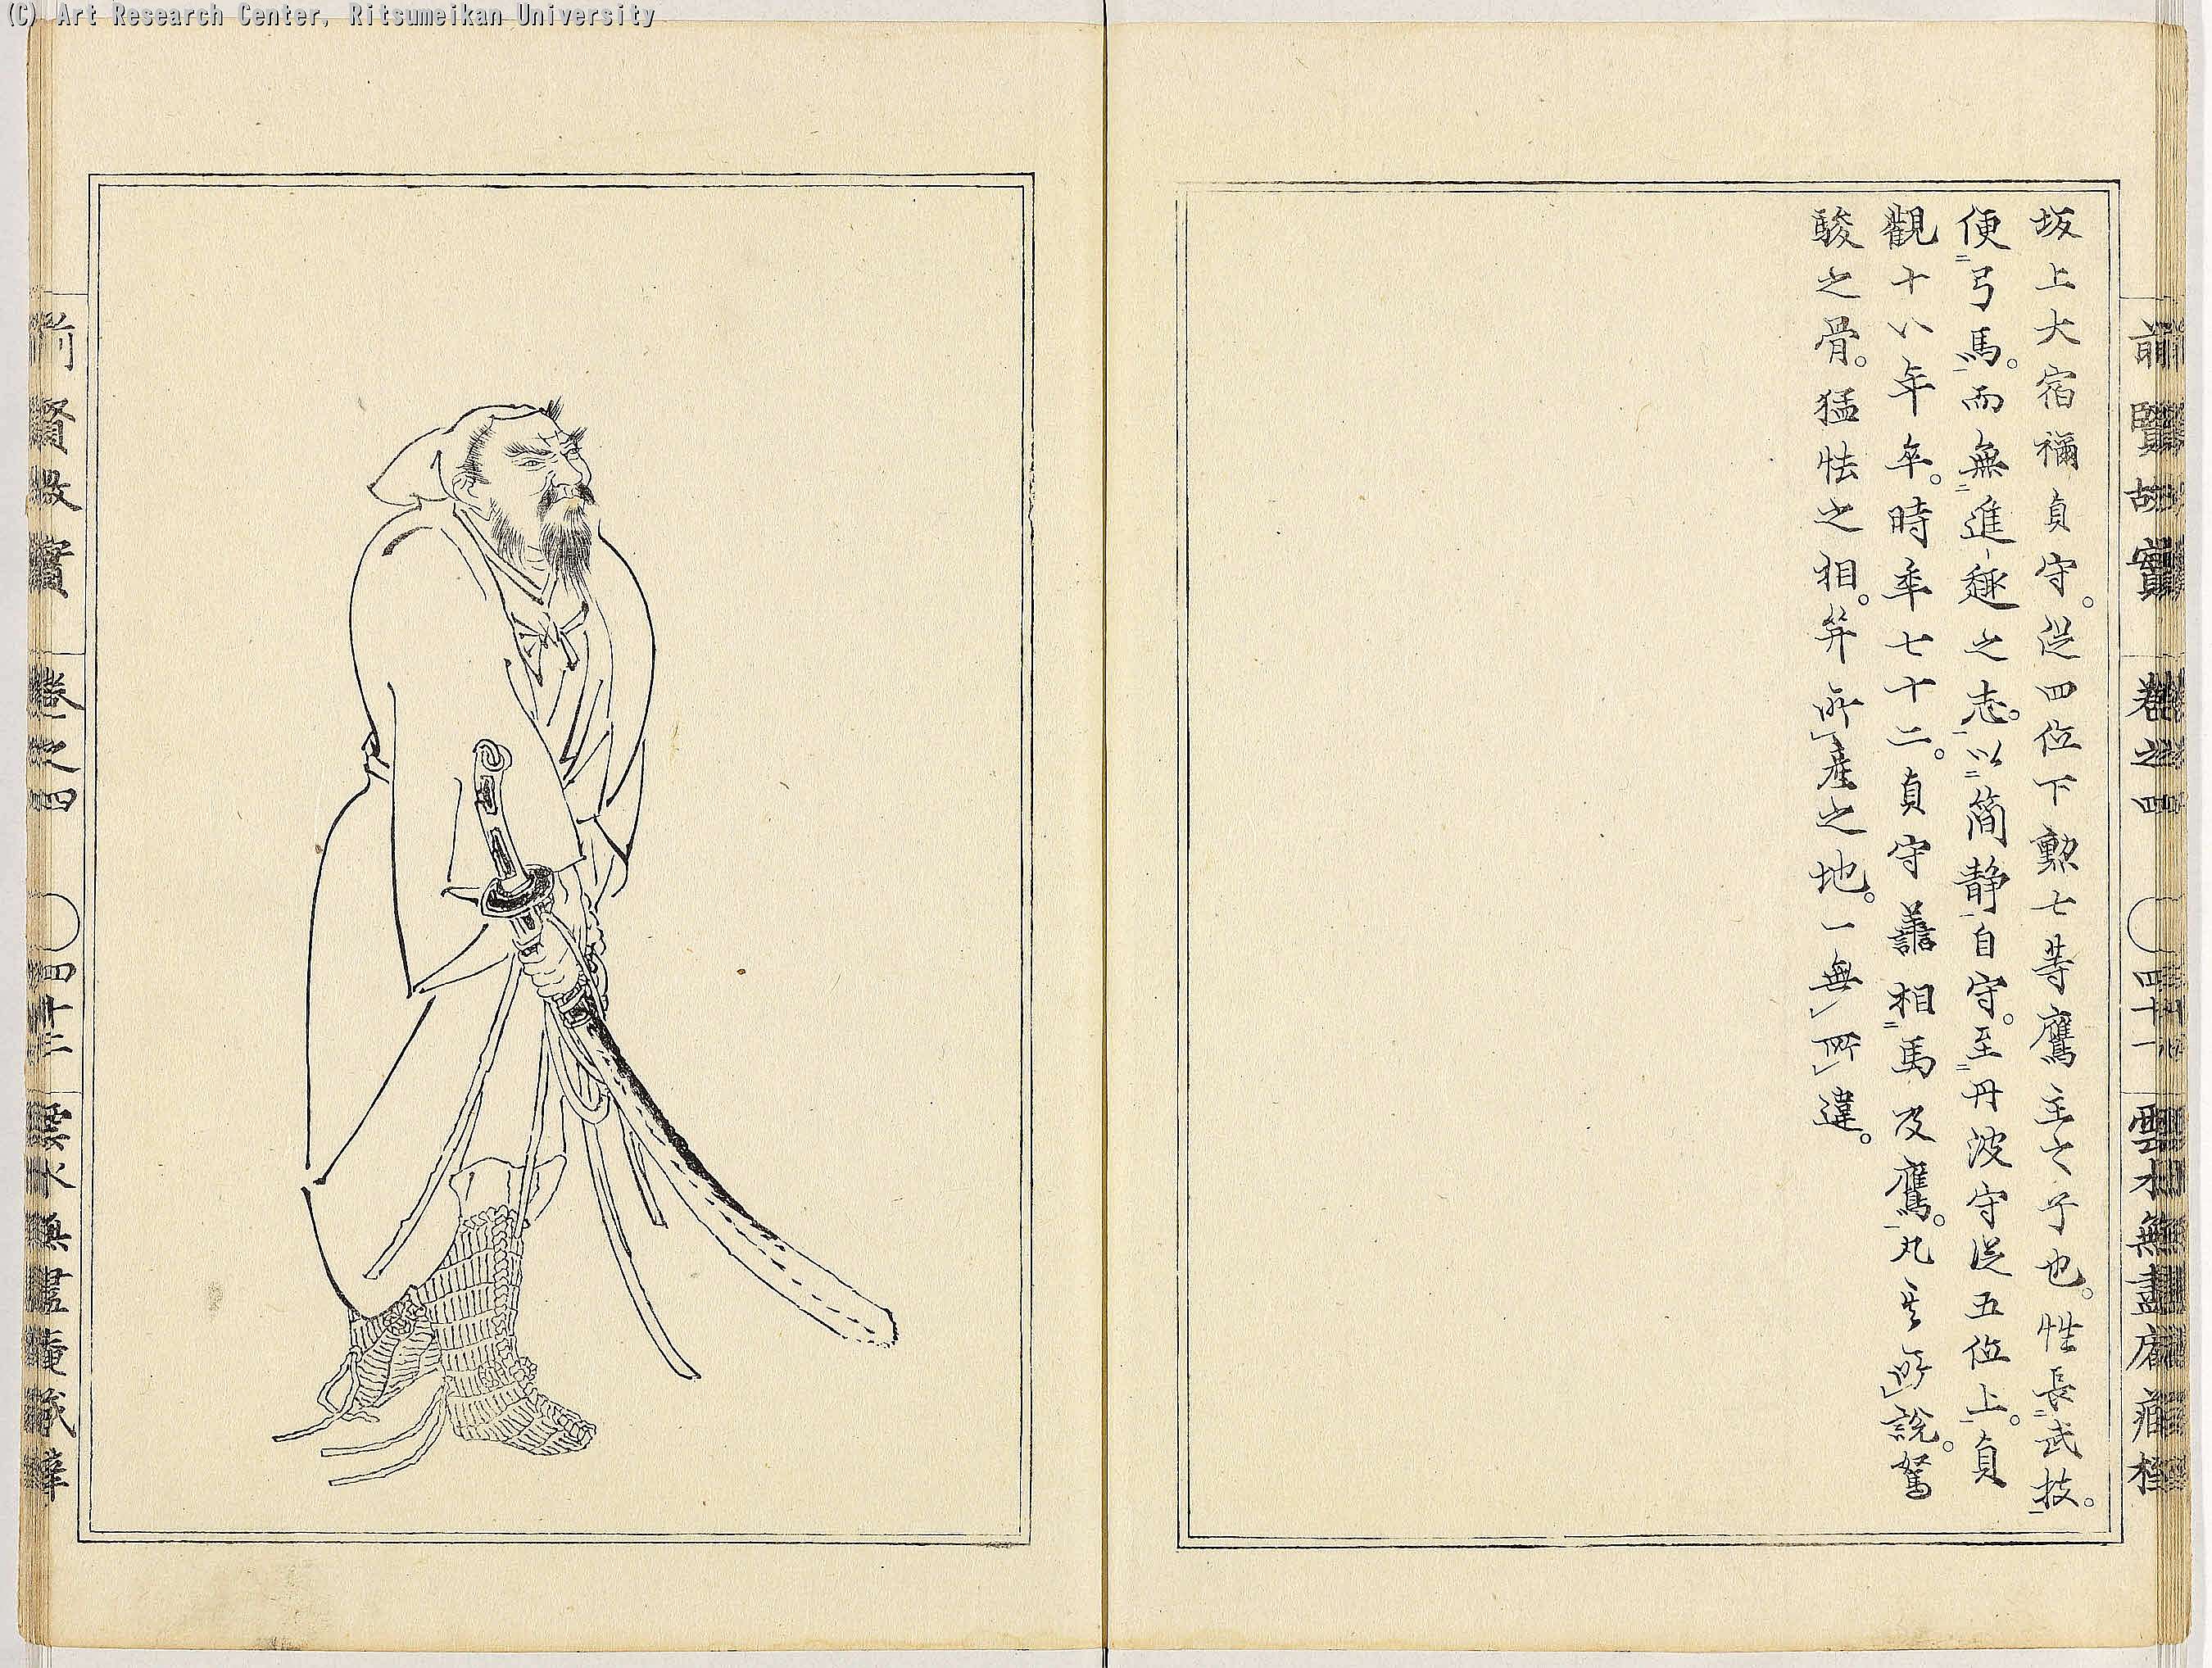 (C) Art Research Center, Ritsumeikan University
前賢故實 卷之四 〇四十一 雲水無盡庵藏梓
坂上大宿禰貞守。從四位下勲七等鷹主之子也。性長武技。
便弓馬。而無進趣之志。以簡静自守。至丹波守從五位上。貞
觀十八年卒。時年七十二。貞守善相馬及鷹。凡其所說。駑
駿之骨。猛怯之相。并所產之地。一無所違。
前賢故實 卷之四 〇四十二 雲水無盡庵藏梓